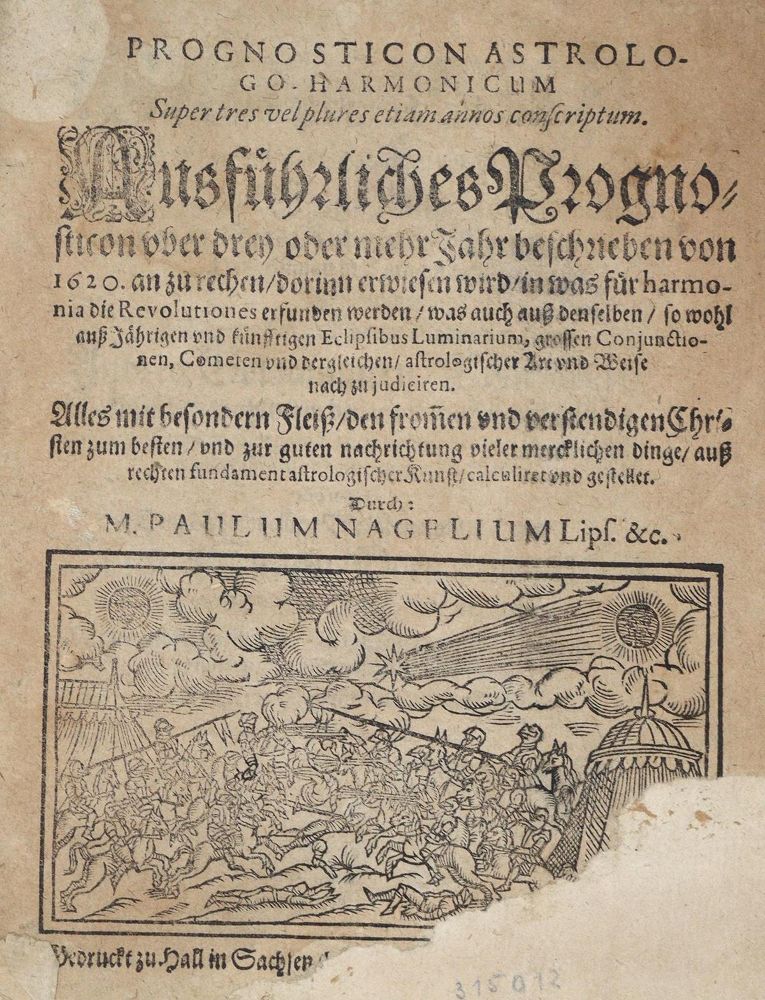 PROGNOSTICON ASTROLO-
GO-HARMONICUM
Super tres vel plures etiam annos conscriptum.
Ausführliches Progno⸗
sticon vber drey oder mehr Jahr beschrieben von
1620. an zu rechen/dorinn erwiesen wird/in was für harmo-
nia die Revolutiones erfunden werden/was auch auß denselben/so wohl
auß Jährigen vnd künfftigen Eclipsibus Luminarium, grossen Conjunctio-
nen, Cometen vnd dergleichen/astrologischer Art vnd Weise
nach zu judiciren.
Alles mit besondern Fleiß/den from̃en vnd verstendigen Chri⸗
sten zum besten/vnd zur guten nachrichtung vieler mercklichen dinge/auß
rechten fundament astrologischer Kunst/calculiret vnd gestellet.
Durch:
M. PAULUM NAGELIUM Lips. &c.
Gedruckt zu Hall in Sachsen
315012